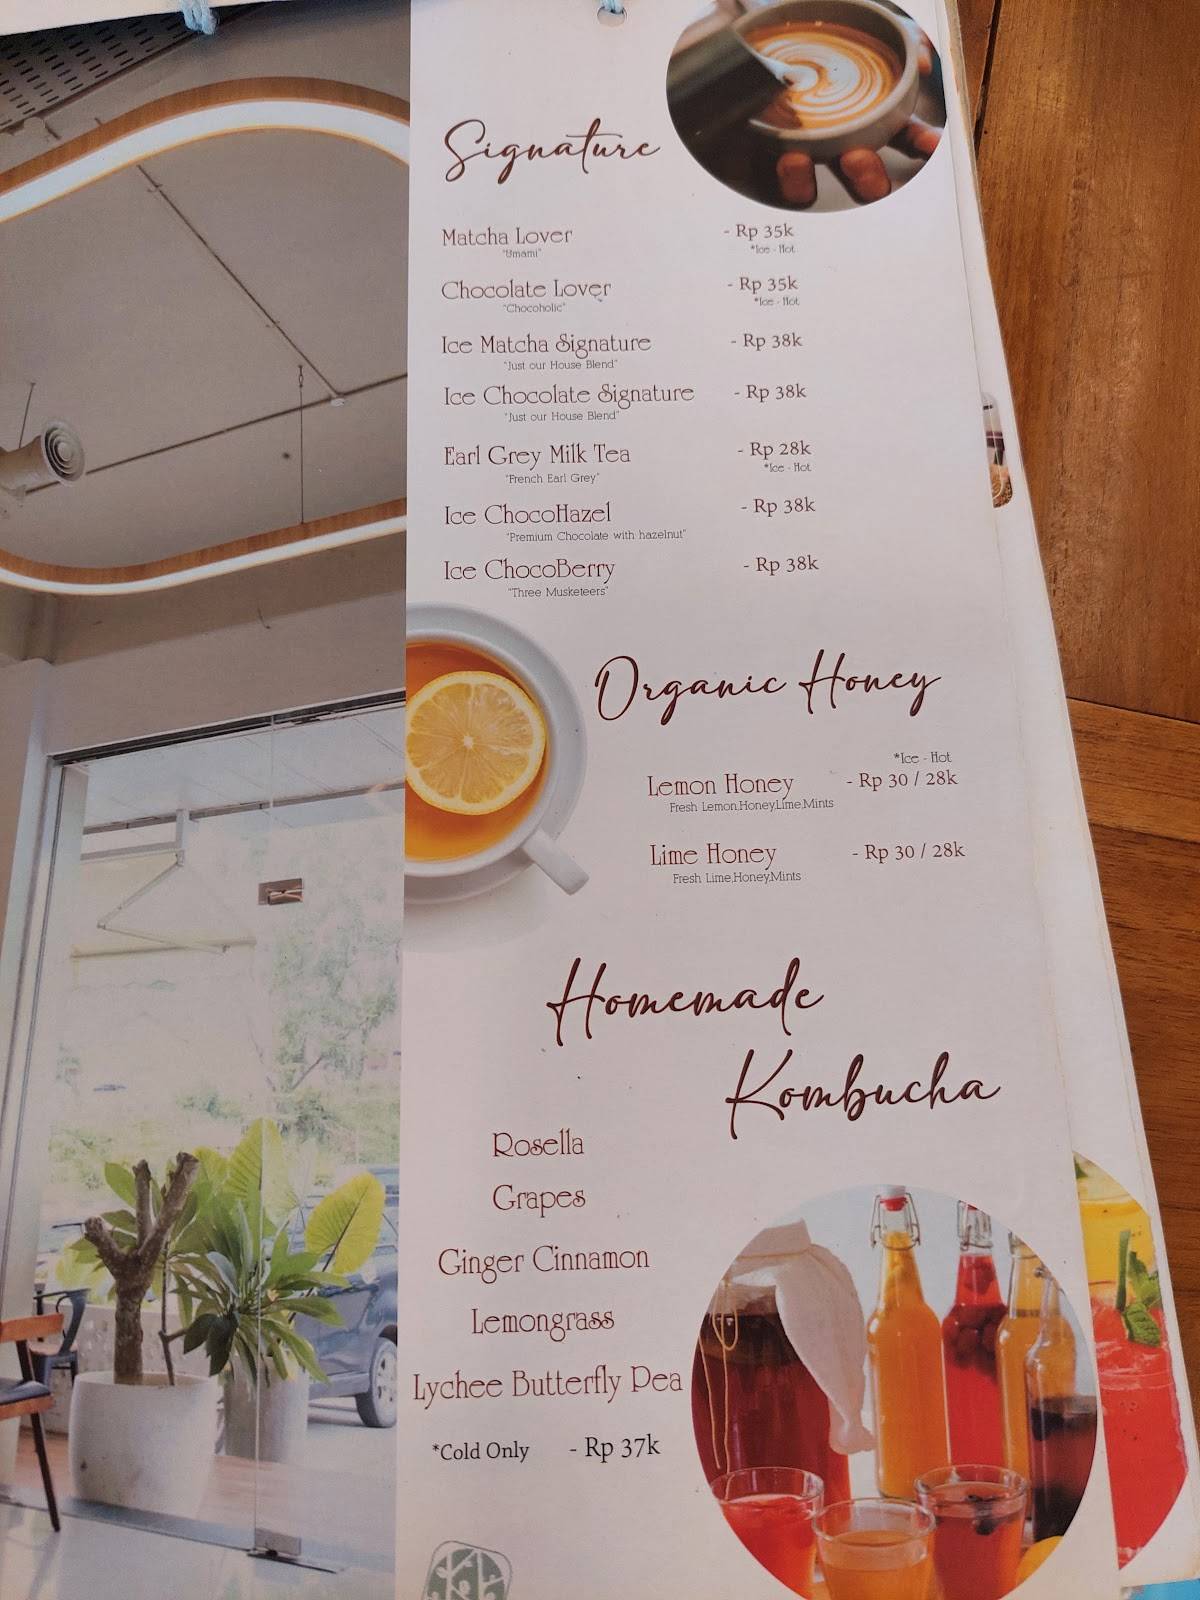 Signature
Matcha Lover - Rp 35k
"Umami" *Ice - Hot
Chocolate Lover - Rp 35k
"Chocoholic" *Ice - Hot
Ice Matcha Signature - Rp 38k
"Just our House Blend"
Ice Chocolate Signature - Rp 38k
"Just our House Blend"
Earl Grey Milk Tea - Rp 28k
"French Earl Grey" *Ice - Hot
Ice ChocoHazel - Rp 38k
"Premium Chocolate with hazelnut"
Ice ChocoBerry - Rp 38k
"Three Musketeers"
Organic Honey
*Ice - Hot
Lemon Honey - Rp 30 / 28k
Fresh Lemon,Honey,Lime,Mints
Lime Honey - Rp 30 / 28k
Fresh Lime,Honey,Mints
Homemade
Kombucha
Rosella
Grapes
Ginger Cinnamon
Lemongrass
Lychee Butterfly Pea
*Cold Only - Rp 37k